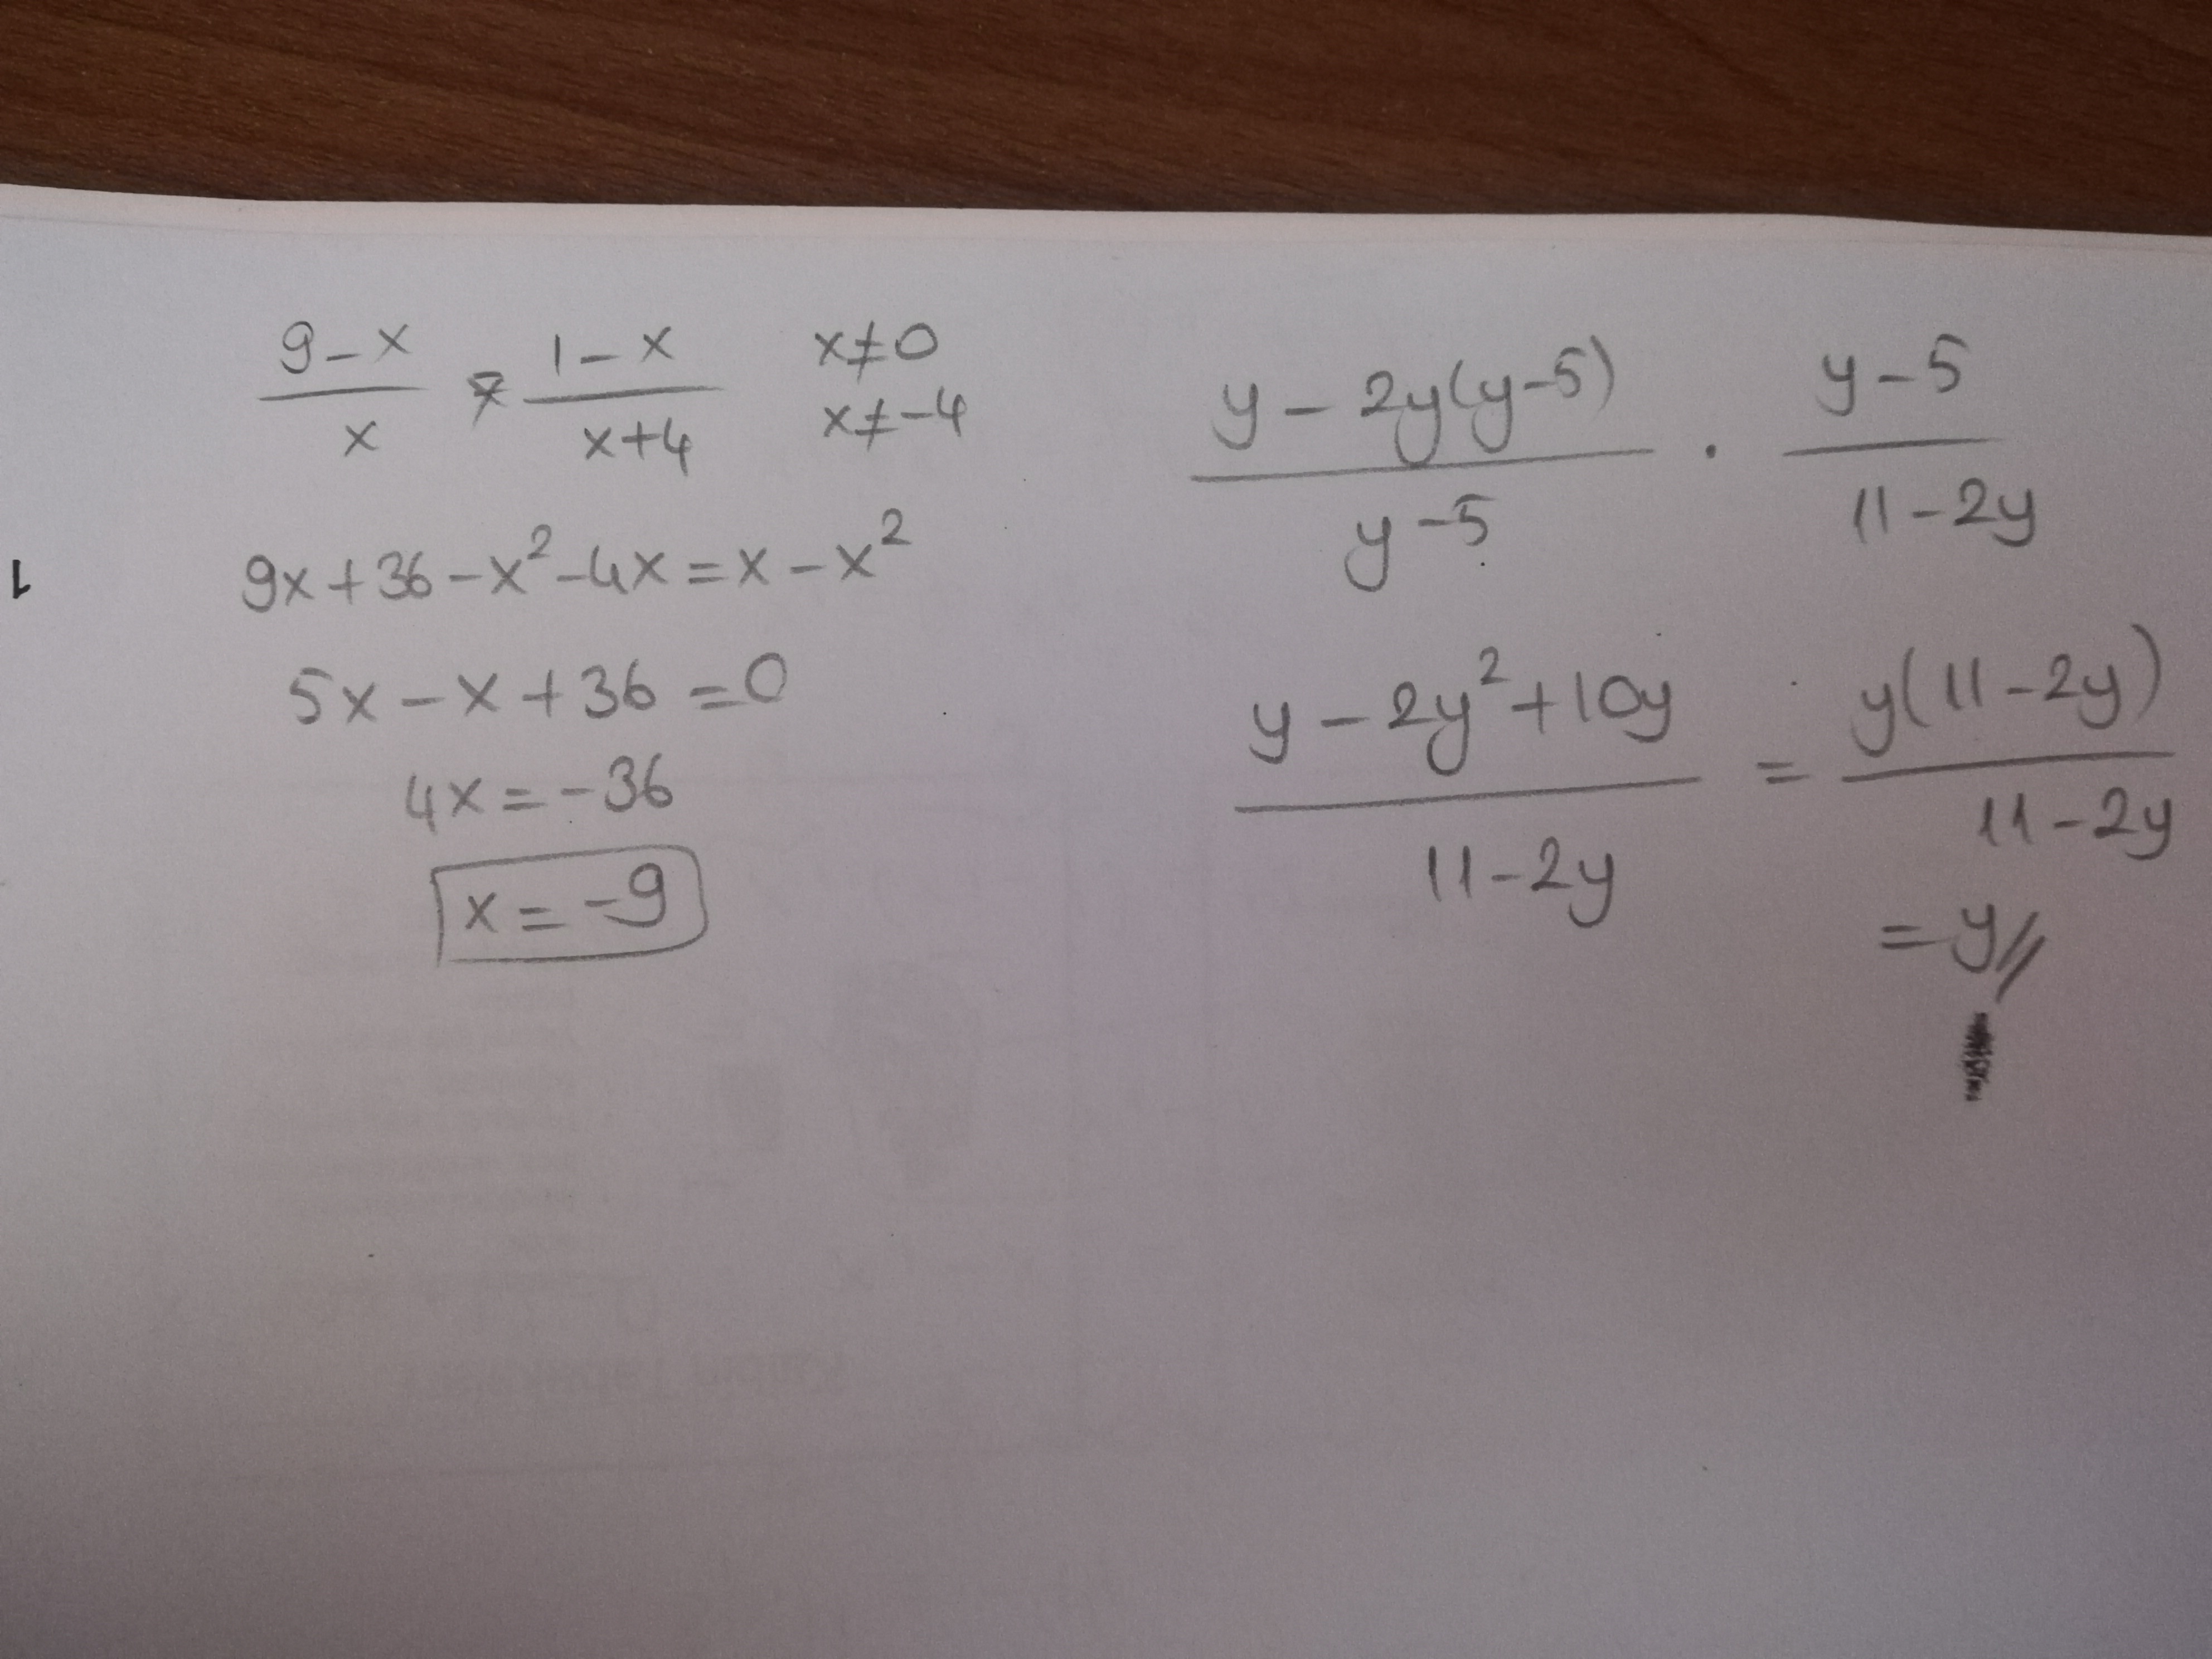 (9-x)/x = (1-x)/(x+4) x≠0 x≠-4
9x+36-x²-4x=x-x²
5x-x+36=0
4x=-36
x=-9
(y-2y(y-5))/(y-5) · (y-5)/(11-2y)
(y-2y²+10y)/(11-2y) = (y(11-2y))/(11-2y)
=y//
1